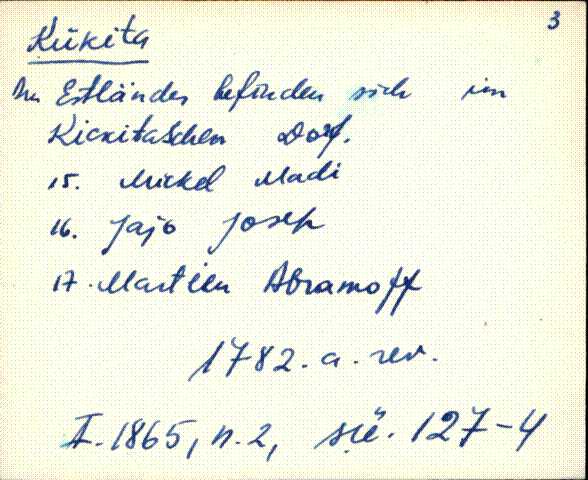 3
Kükita
Estländer befinden sich im
Kickitaschen Dorf.
15. Mickel Madi
16. Jajo Josep
17. Martin Abramoff
1782. a. rev.
I. 1865, n. 2, sü. 127-4